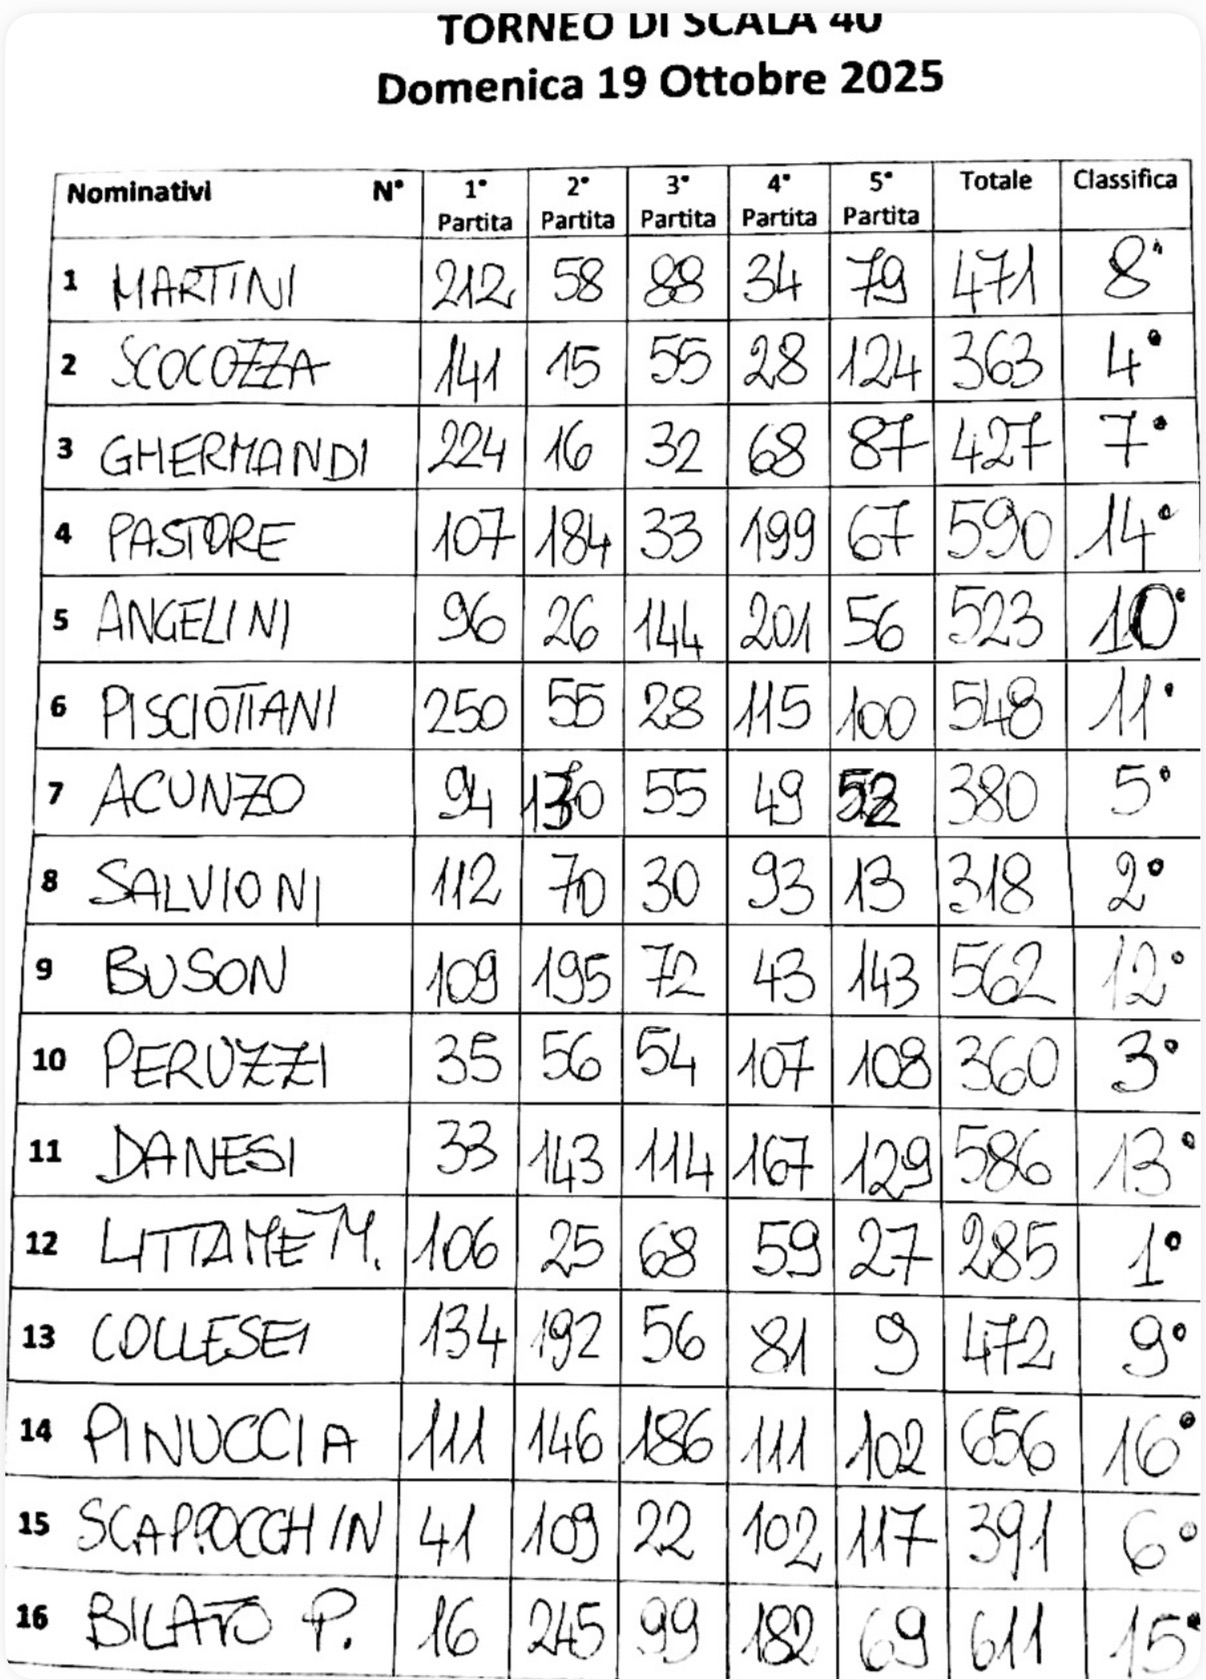 TORNEO DI SCALA 40
Domenica 19 Ottobre 2025
Nominativi N° 1° Partita 2° Partita 3° Partita 4° Partita 5° Partita Totale Classifica
1 MARTINI 212 58 88 34 79 471 8°
2 SCOCOZZA 141 15 55 28 124 363 4°
3 GHERMANDI 224 16 32 68 87 427 7°
4 PASTORE 107 184 33 199 67 590 14°
5 ANGELINI 96 26 144 201 56 523 10°
6 PISCIOTTANI 250 55 28 115 100 548 11°
7 ACUNZO 94 130 55 49 52 380 5°
8 SALVIONI 112 70 30 93 13 318 2°
9 BUSON 109 195 72 43 143 562 12°
10 PERUZZI 35 56 54 107 108 360 3°
11 DANESI 33 143 114 167 129 586 13°
12 LITTAME M. 106 25 68 59 27 285 1°
13 COLLESEI 134 192 56 81 9 472 9°
14 PINUCCIA 111 146 186 111 102 656 16°
15 SCAPPOCCHIN 41 109 22 102 117 391 6°
16 BILATO P. 16 245 99 182 69 611 15°